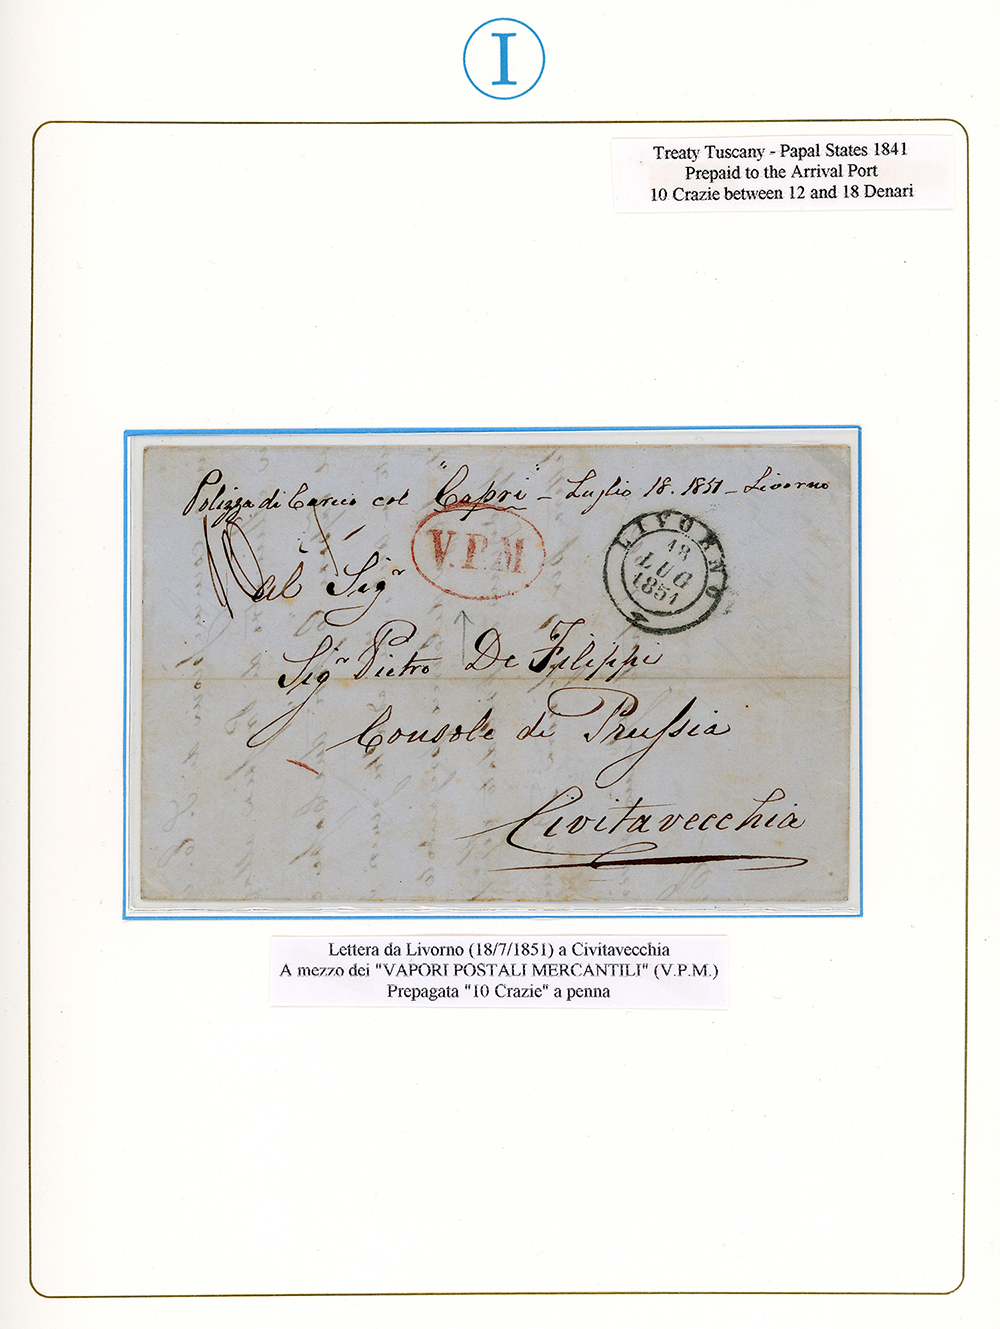 I
Treaty Tuscany - Papal States 1841
Prepaid to the Arrival Port
10 Crazie between 12 and 18 Denari
Polizza di Carico col "Capri" - Luglio 18. 1851 - Livorno
V.P.M
LIVORNO
18
LUG
1851
10
al Sigr
Sigr Pietro De Filippi
Console di Prussia
Civitavecchia
Lettera da Livorno (18/7/1851) a Civitavecchia
A mezzo dei "VAPORI POSTALI MERCANTILI" (V.P.M.)
Prepagata "10 Crazie" a penna